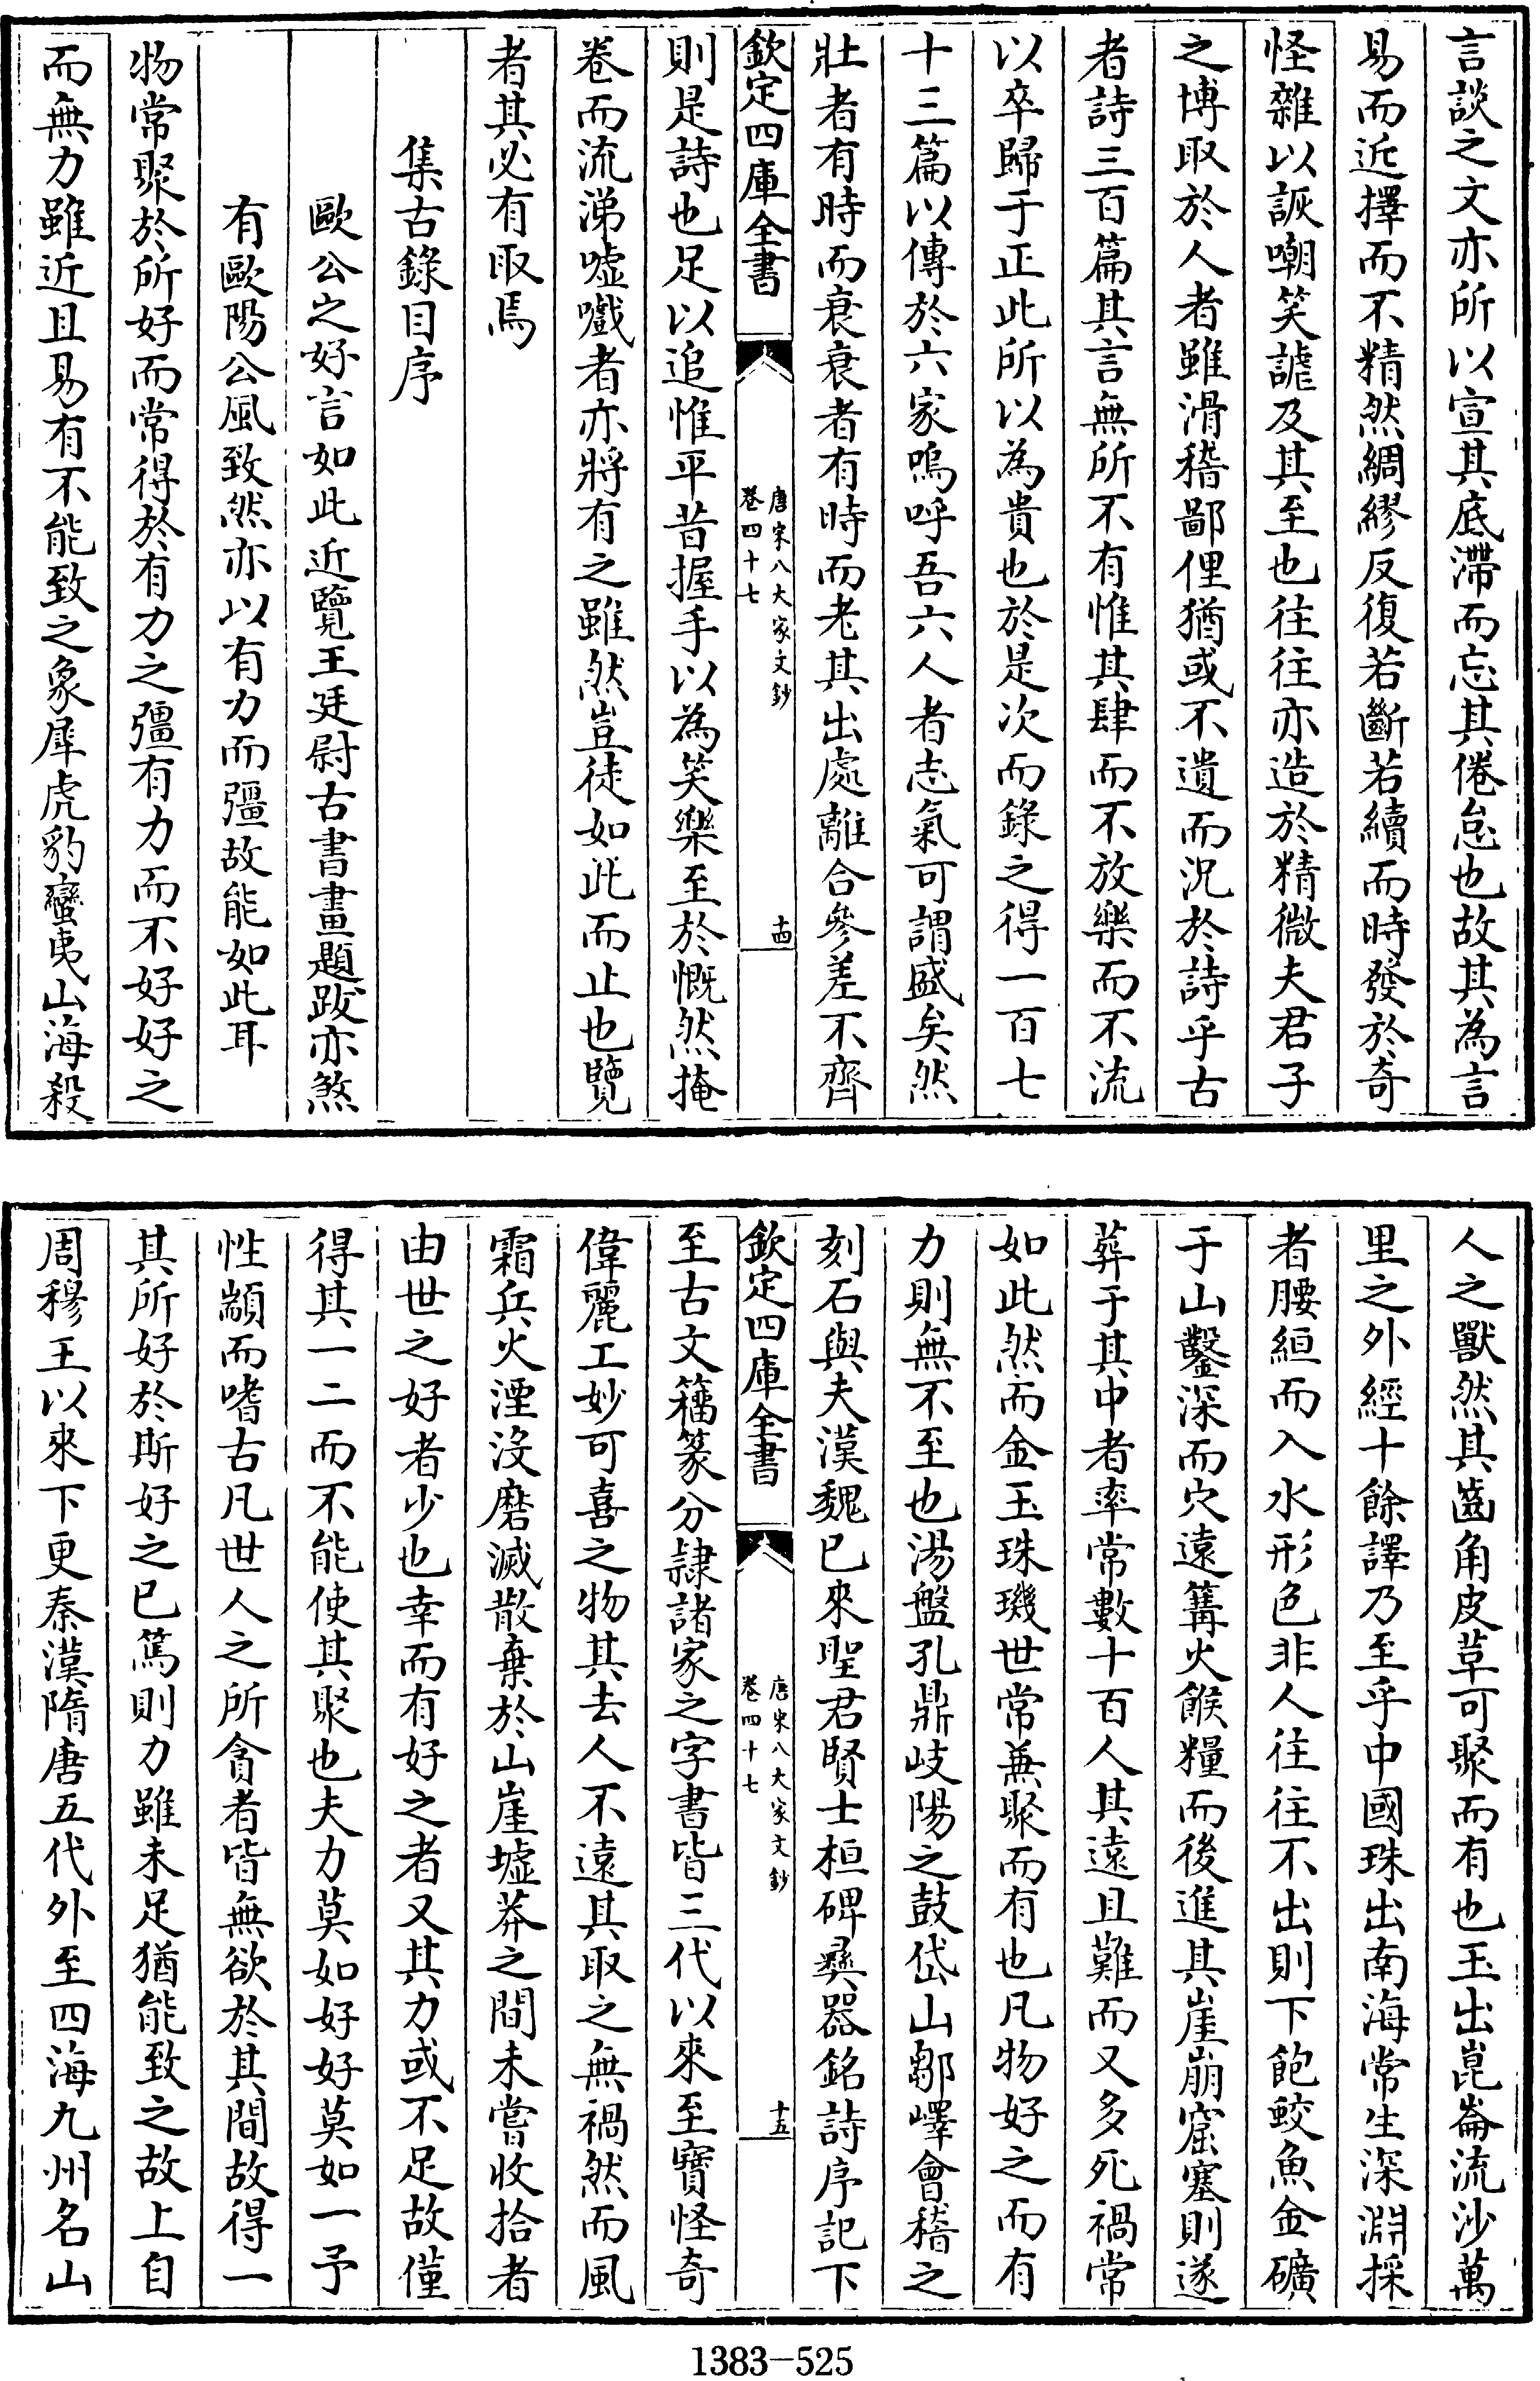 言談之文亦所以宣其底滯而忘其倦怠也故其為言
易而近擇而不精然綢繆反復若斷若續而時發於奇
怪雜以詼嘲笑謔及其至也往往亦造於精微夫君子
之博取於人者雖滑稽鄙俚猶或不遺而況於詩乎古
者詩三百篇其言無所不有惟其肆而不放樂而不流
以卒歸于正此所以為貴也於是次而錄之得一百七
十三篇以傳於六家嗚呼吾六人者志氣可謂盛矣然
壯者有時而衰衰者有時而老其出處離合參差不齊
欽定四庫全書
唐宋八大家文鈔
卷四十七
十四
則是詩也足以追惟平昔握手以為笑樂至於慨然掩
卷而流涕噓嚱者亦將有之雖然豈徒如此而止也覽
者其必有取焉
集古錄目序
歐公之好言如此近覽王廷尉古書畫題跋亦煞
有歐陽公風致然亦以有力而彊故能如此耳
物常聚於所好而常得於有力之彊有力而不好好之
而無力雖近且易有不能致之象犀虎豹蠻夷山海殺
人之獸然其齒角皮草可聚而有也玉出崑崙流沙萬
里之外經十餘譯乃至乎中國珠出南海常生深淵採
者腰絙而入水形色非人往往不出則下飽蛟魚金礦
于山鑿深而穴遠篝火餱糧而後進其崖崩窟塞則遂
葬于其中者率常數十百人其遠且難而又多死禍常
如此然而金玉珠璣世常兼聚而有也凡物好之而有
力則無不至也湯盤孔鼎岐陽之鼓岱山鄒嶧會稽之
刻石與夫漢魏已來聖君賢士桓碑彞器銘詩序記下
欽定四庫全書
唐宋八大家文鈔
卷四十七
十五
至古文籀篆分隸諸家之字書皆三代以來至寶怪奇
偉麗工妙可喜之物其去人不遠其取之無禍然而風
霜兵火湮沒磨滅散棄於山崖墟莽之間未嘗收拾者
由世之好者少也幸而有好之者又其力或不足故僅
得其一二而不能使其聚也夫力莫如好好莫如一予
性顓而嗜古凡世人之所貪者皆無欲於其間故得一
其所好於斯好之已篤則力雖未足猶能致之故上自
周穆王以來下更秦漢隋唐五代外至四海九州名山
1383-525